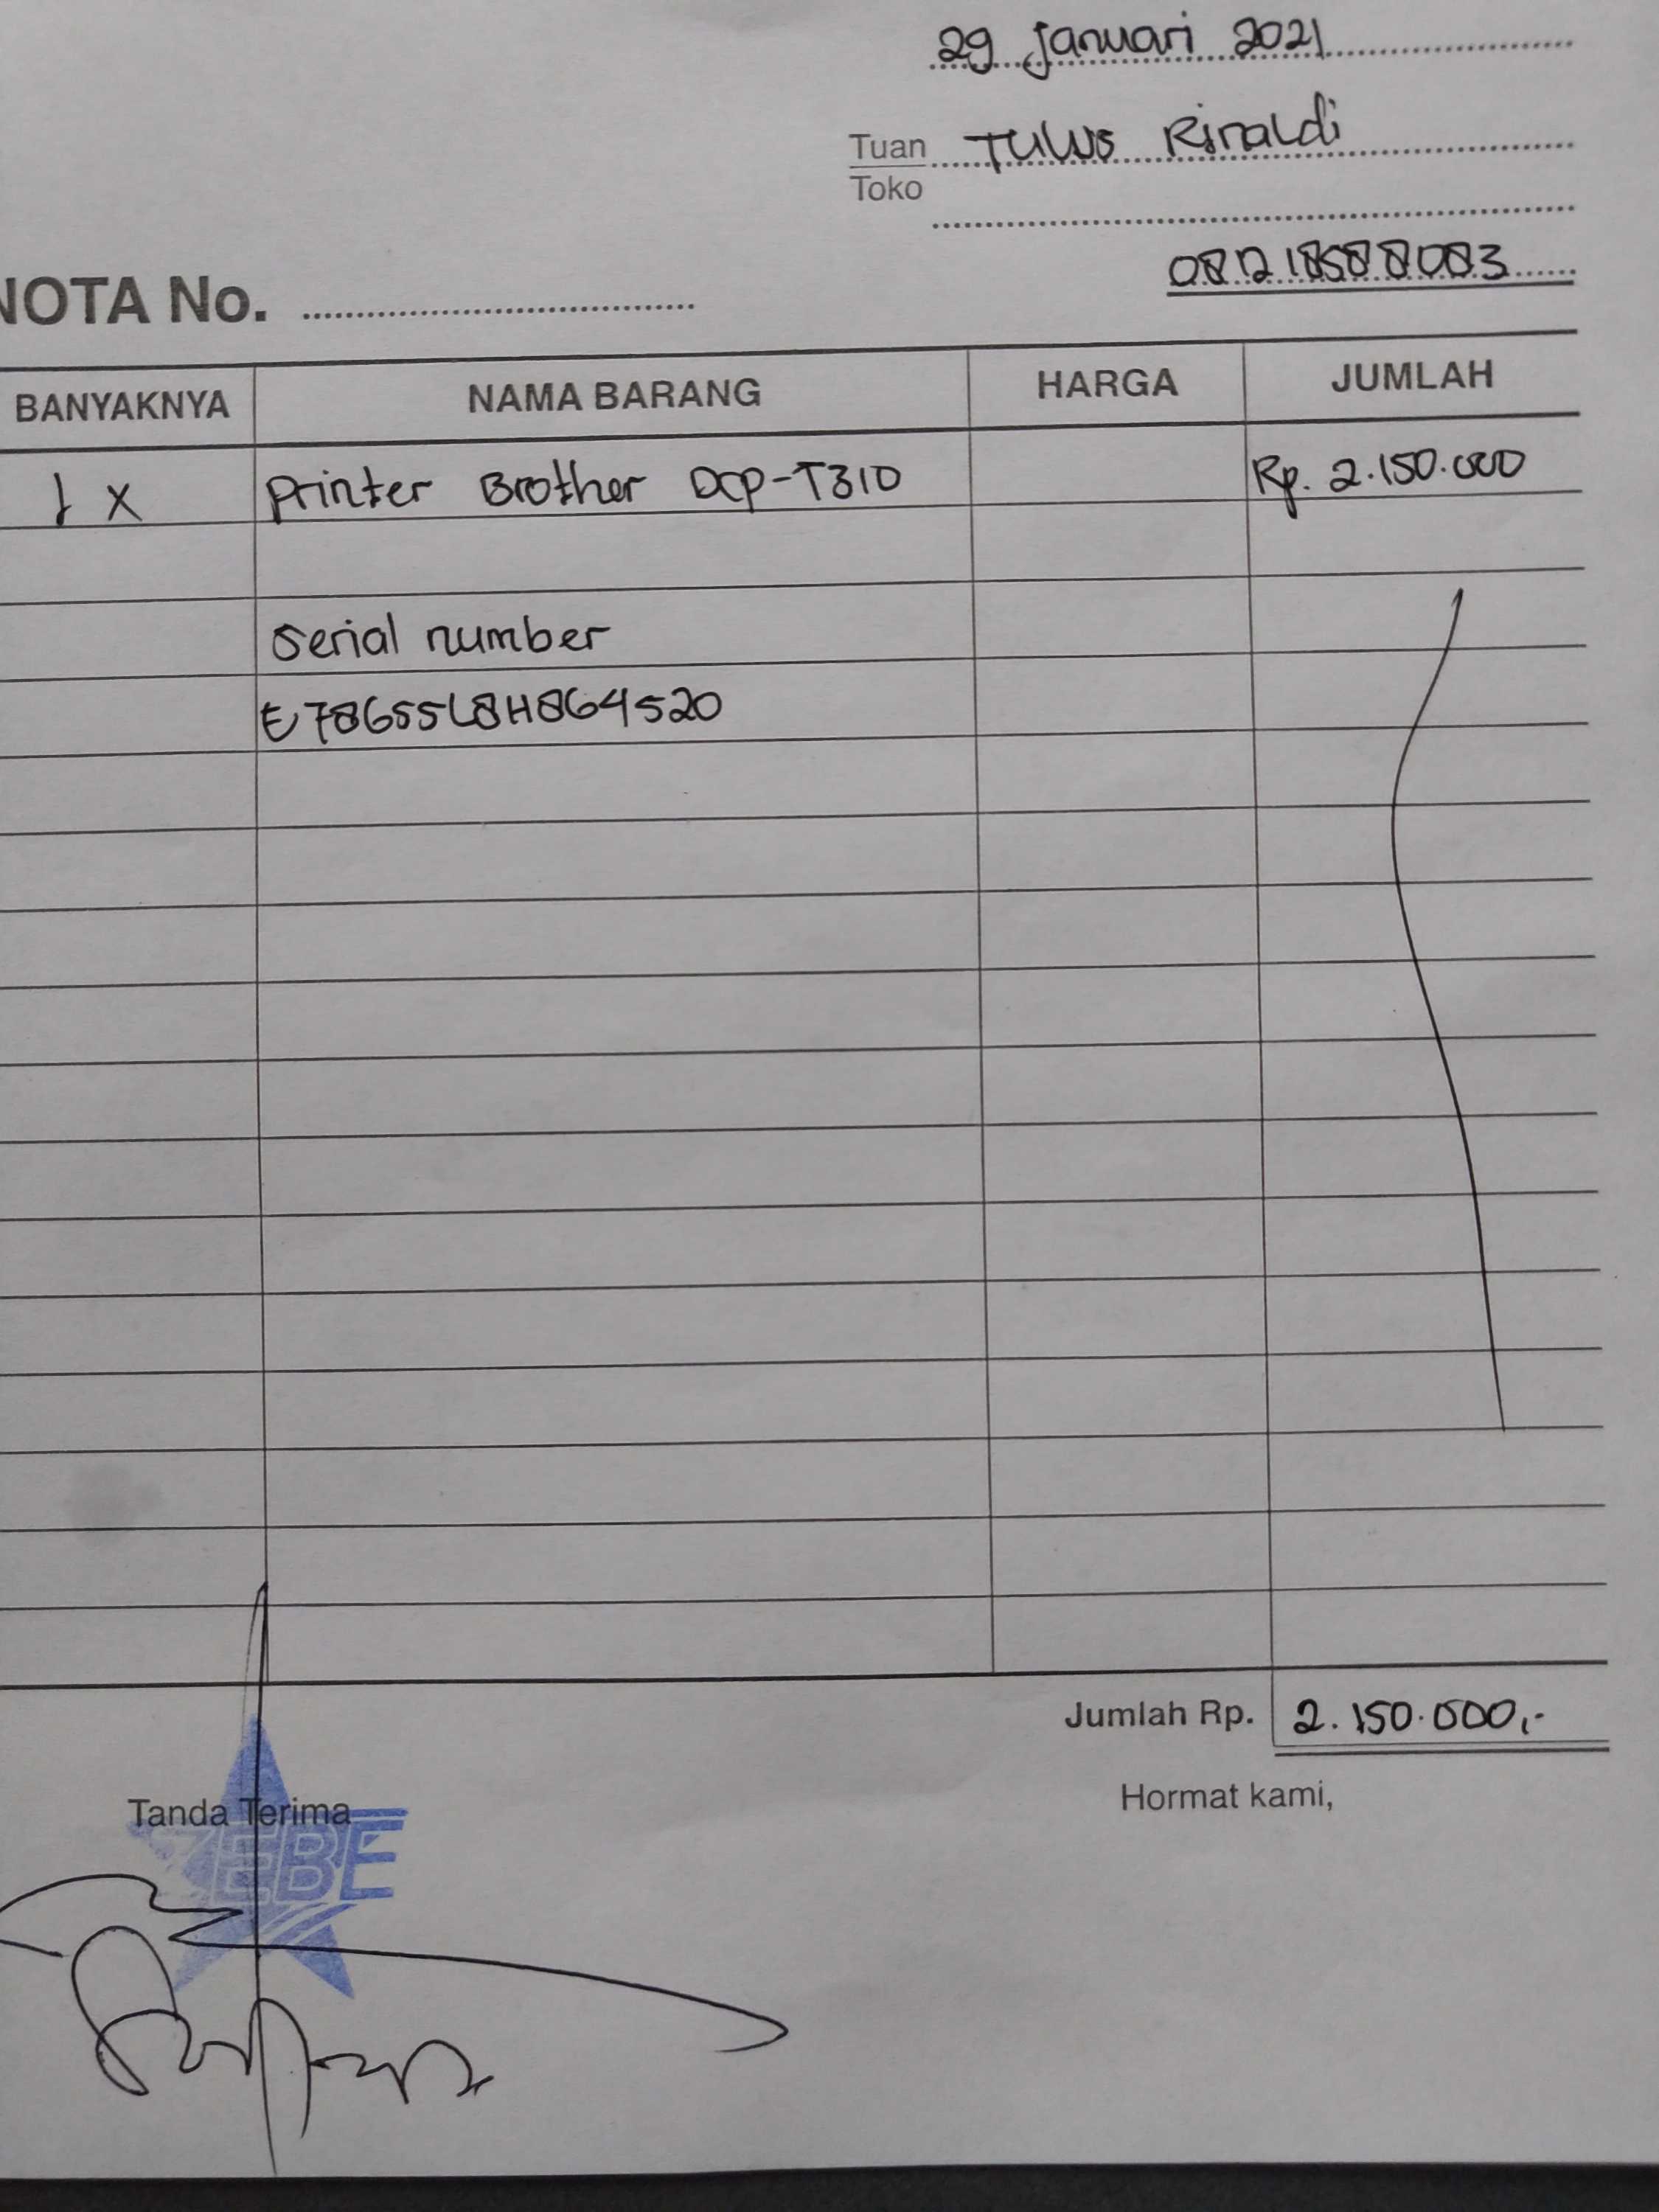 29 Januari 2021
Tuan Tulus Rinaldi
Toko
081218588083
NOTA No.
BANYAKNYA NAMA BARANG HARGA JUMLAH
1 X Printer Brother DCP-T310 Rp. 2.150.000
Serial number
E78655L8H864520
Jumlah Rp. 2.150.000,-
Tanda Terima Hormat kami,
ZEBE